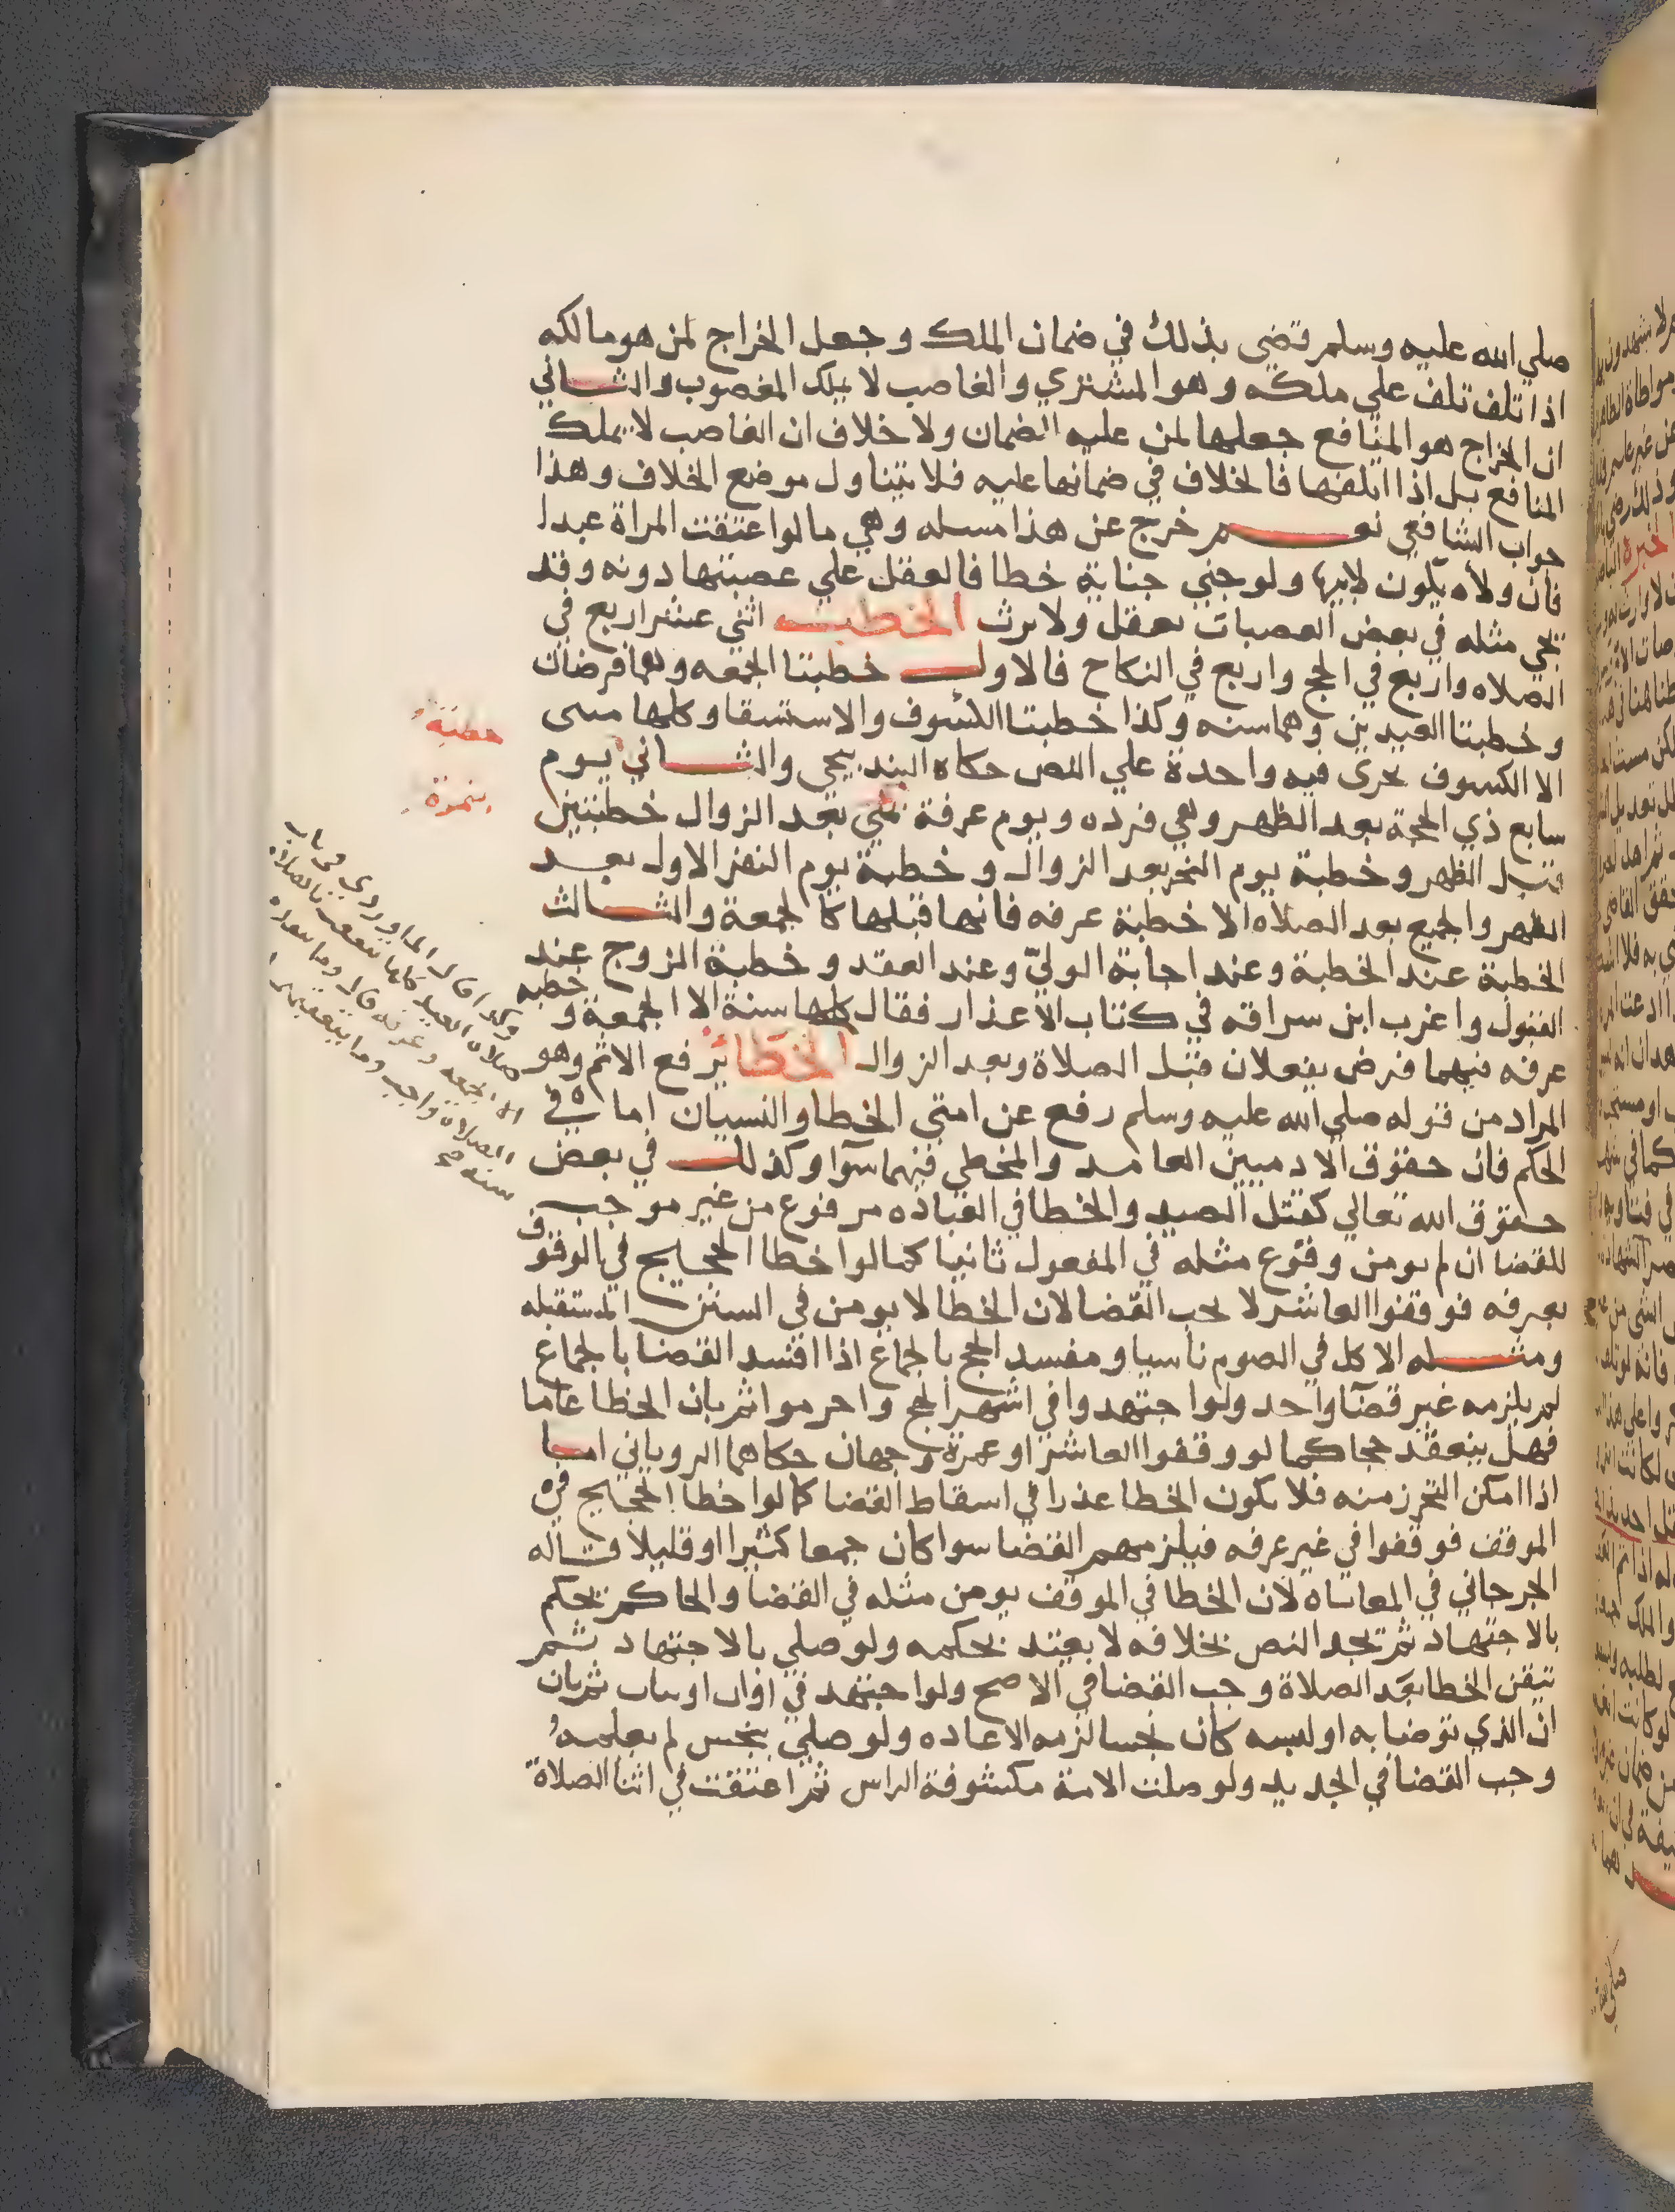 صلي الله عليه وسلم قضي بذلك في ضمان الملك وجعل الخراج لمن هو مالكه
اذا تلف تلف علي ملكه وهو المشتري والغاصب لا يملك المغصوب والثاني
ان الخراج هو المنافع جعلها لمن عليه الضمان ولا خلاف ان الغاصب لا يملك
المنافع بل اذا اتلفها فالخلاف في ضمانها عليه فلا يتناول موضع الخلاف وهذا
جواب الشافعي نعم خرج عن هذا مسله وهي ما لو اعتقت المراة عبدا
فان ولاه يكون لابنها ولو جني جناية خطا فالعقل علي عصبتها دونه وقد
يجي مثله في بعض العصبات يعقل ولا يرث الخطبه اثني عشر اربع في
الصلاه واربع في الحج واربع في النكاح فالاول خطبتا الجمعه وهما فرضان
وخطبتا العيدين وهما سنه وكذا خطبتا الكسوف والاستسقا وكلها مثنى
الا الكسوف يجرى فيه واحدة علي النص حكاه البندنيجي والثاني يوم
سابع ذي الحجة بعد الظهر وهي فرده ويوم عرفة بعد الزوال خطبتين
قبل الظهر وخطبة يوم النحر بعد الزوال وخطبة يوم النفر الاول بعد
الظهر والجميع بعد الصلاه الا خطبة عرفه فانها قبلها كالجمعة والثالث
الخطبة عند الخطبة وعند اجابة الولي وعند العقد وخطبة الزوج عند
القبول واغرب ابن سراقه في كتاب الاعذار فقال كلها سنة الا الجمعة وخطبه
عرفه فيهما فرض يفعلان قبل الصلاة وبعد الزوال الخطا يرفع الاثم وهو
المراد من قوله صلي الله عليه وسلم رفع عن امتي الخطا والنسيان اما في
الحكم فان حقوق الادميين العامد والمخطي فيهما سوا وكذلك في بعض
حقوق الله تعالي كقتل الصيد والخطا في العباده مرفوع من غير موجب
للقضا ان لم يومن وقوع مثله في المفعول ثانيا كما لو اخطا الحجيج في الوقوف
بعرفه فوقفوا العاشر لا يجب القضا لان الخطا لا يومن في السنين المستقبله
ومثله الاكل في الصوم ناسيا ومفسد الحج بالجماع اذا افسد القضا بالجماع
لم يلزمه غير قضا واحد ولو اجتهدوا في اشهر الحج واحرموا ثم بان الخطا عاما
فهل ينعقد حجا كما لو وقفوا العاشر او عمرة وجهان حكاهما الروياني اما
اذا امكن التحرز منه فلا يكون الخطا عذرا في اسقاط القضا كما لو اخطا الحجيج في
الموقف فوقفوا في غير عرفه فيلزمهم القضا سوا كان جمعا كثيرا او قليلا قاله
الجرجاني في المعاياه لان الخطا في الموقف يومن مثله في القضا والحاكم يحكم
بالاجتهاد ثم يجد النص بخلافه لا يعتد بحكمه ولو صلي بالاجتهاد ثم
تيقن الخطا بعد الصلاة وجب القضا في الاصح ولو اجتهد في اوان او ثياب ثم بان
ان الذي توضا به او لبسه كان نجسا لزمه الاعاده ولو صلي بنجس لم يعلمه
وجب القضا في الجديد ولو صلت الامة مكشوفة الراس ثم اعتقت في اثنا الصلاة
خطبة
بنمرة
وكذا قال الماوردي في باب
صلاة العيد كلها بالصلاه
الا الجمعه وعرفه قال وما
الصلاة واجب وما يتعقبها
سنه صح